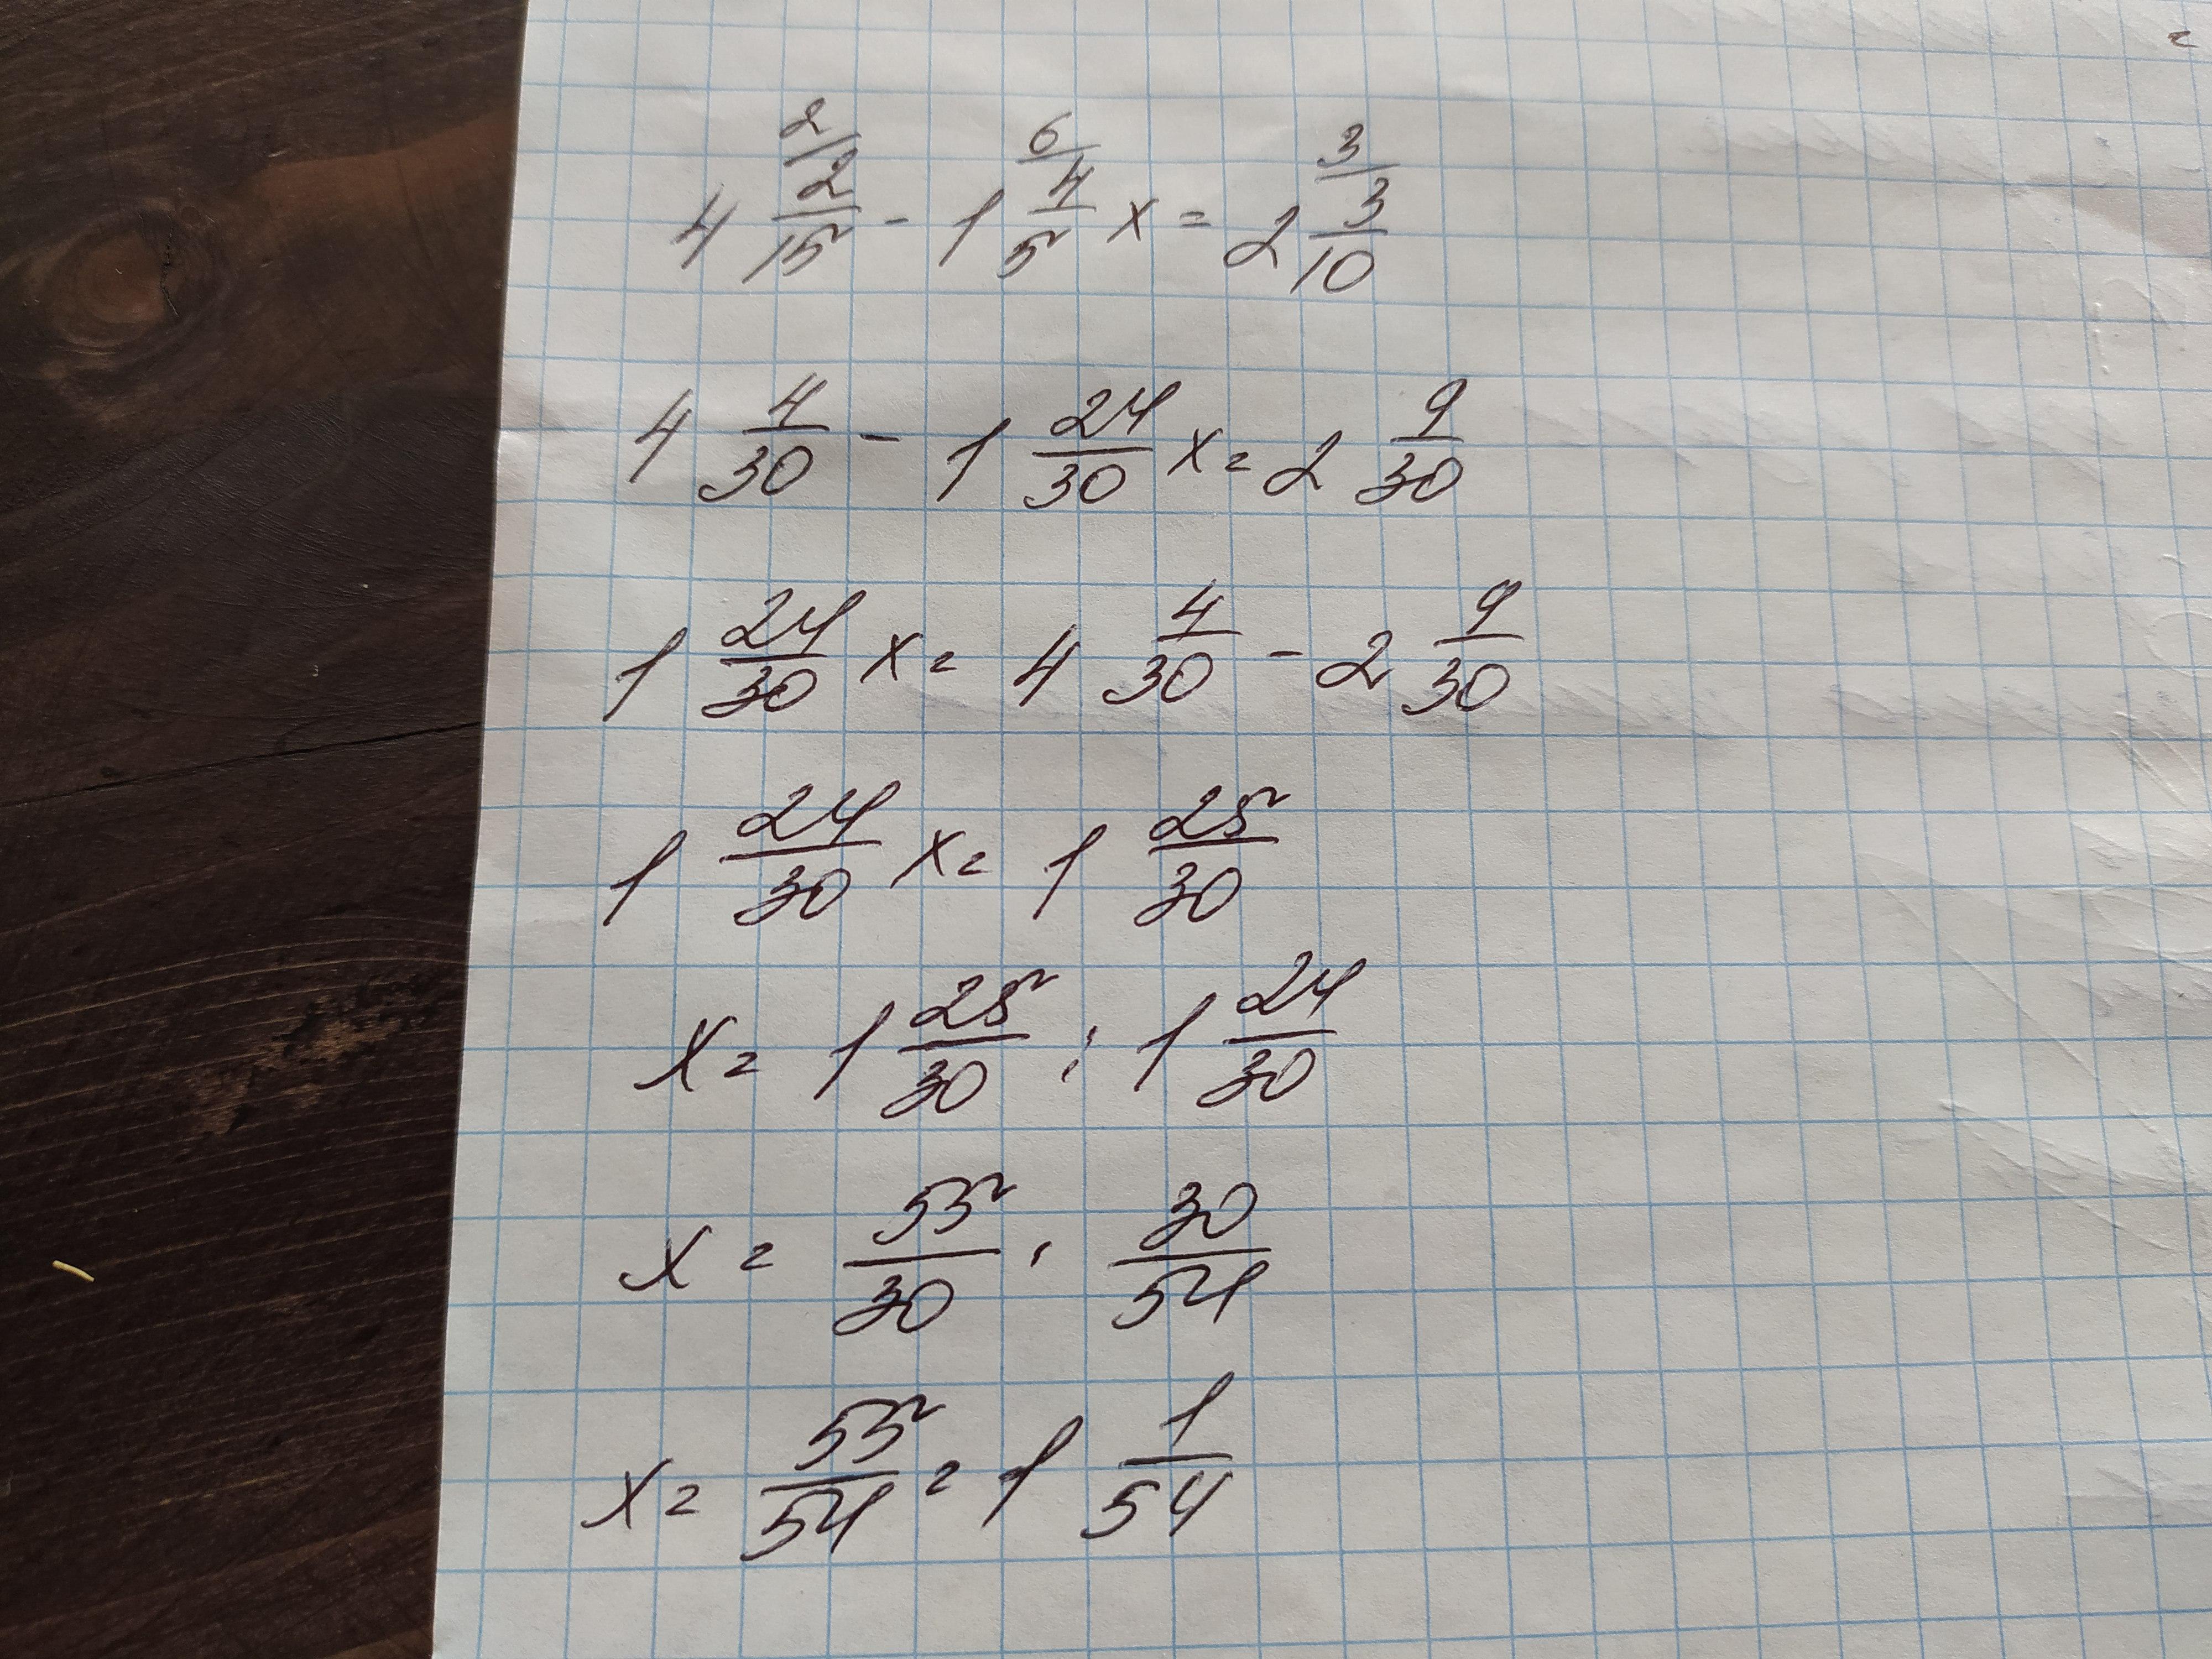 4 2/15 (2/ - 1 4/5 (6/ x = 2 3/10 (3/
4 4/30 - 1 24/30 x = 2 9/30
1 24/30 x = 4 4/30 - 2 9/30
1 24/30 x = 1 25/30
x = 1 25/30 : 1 24/30
x = 55/30 · 30/54
x = 55/54 = 1 1/54